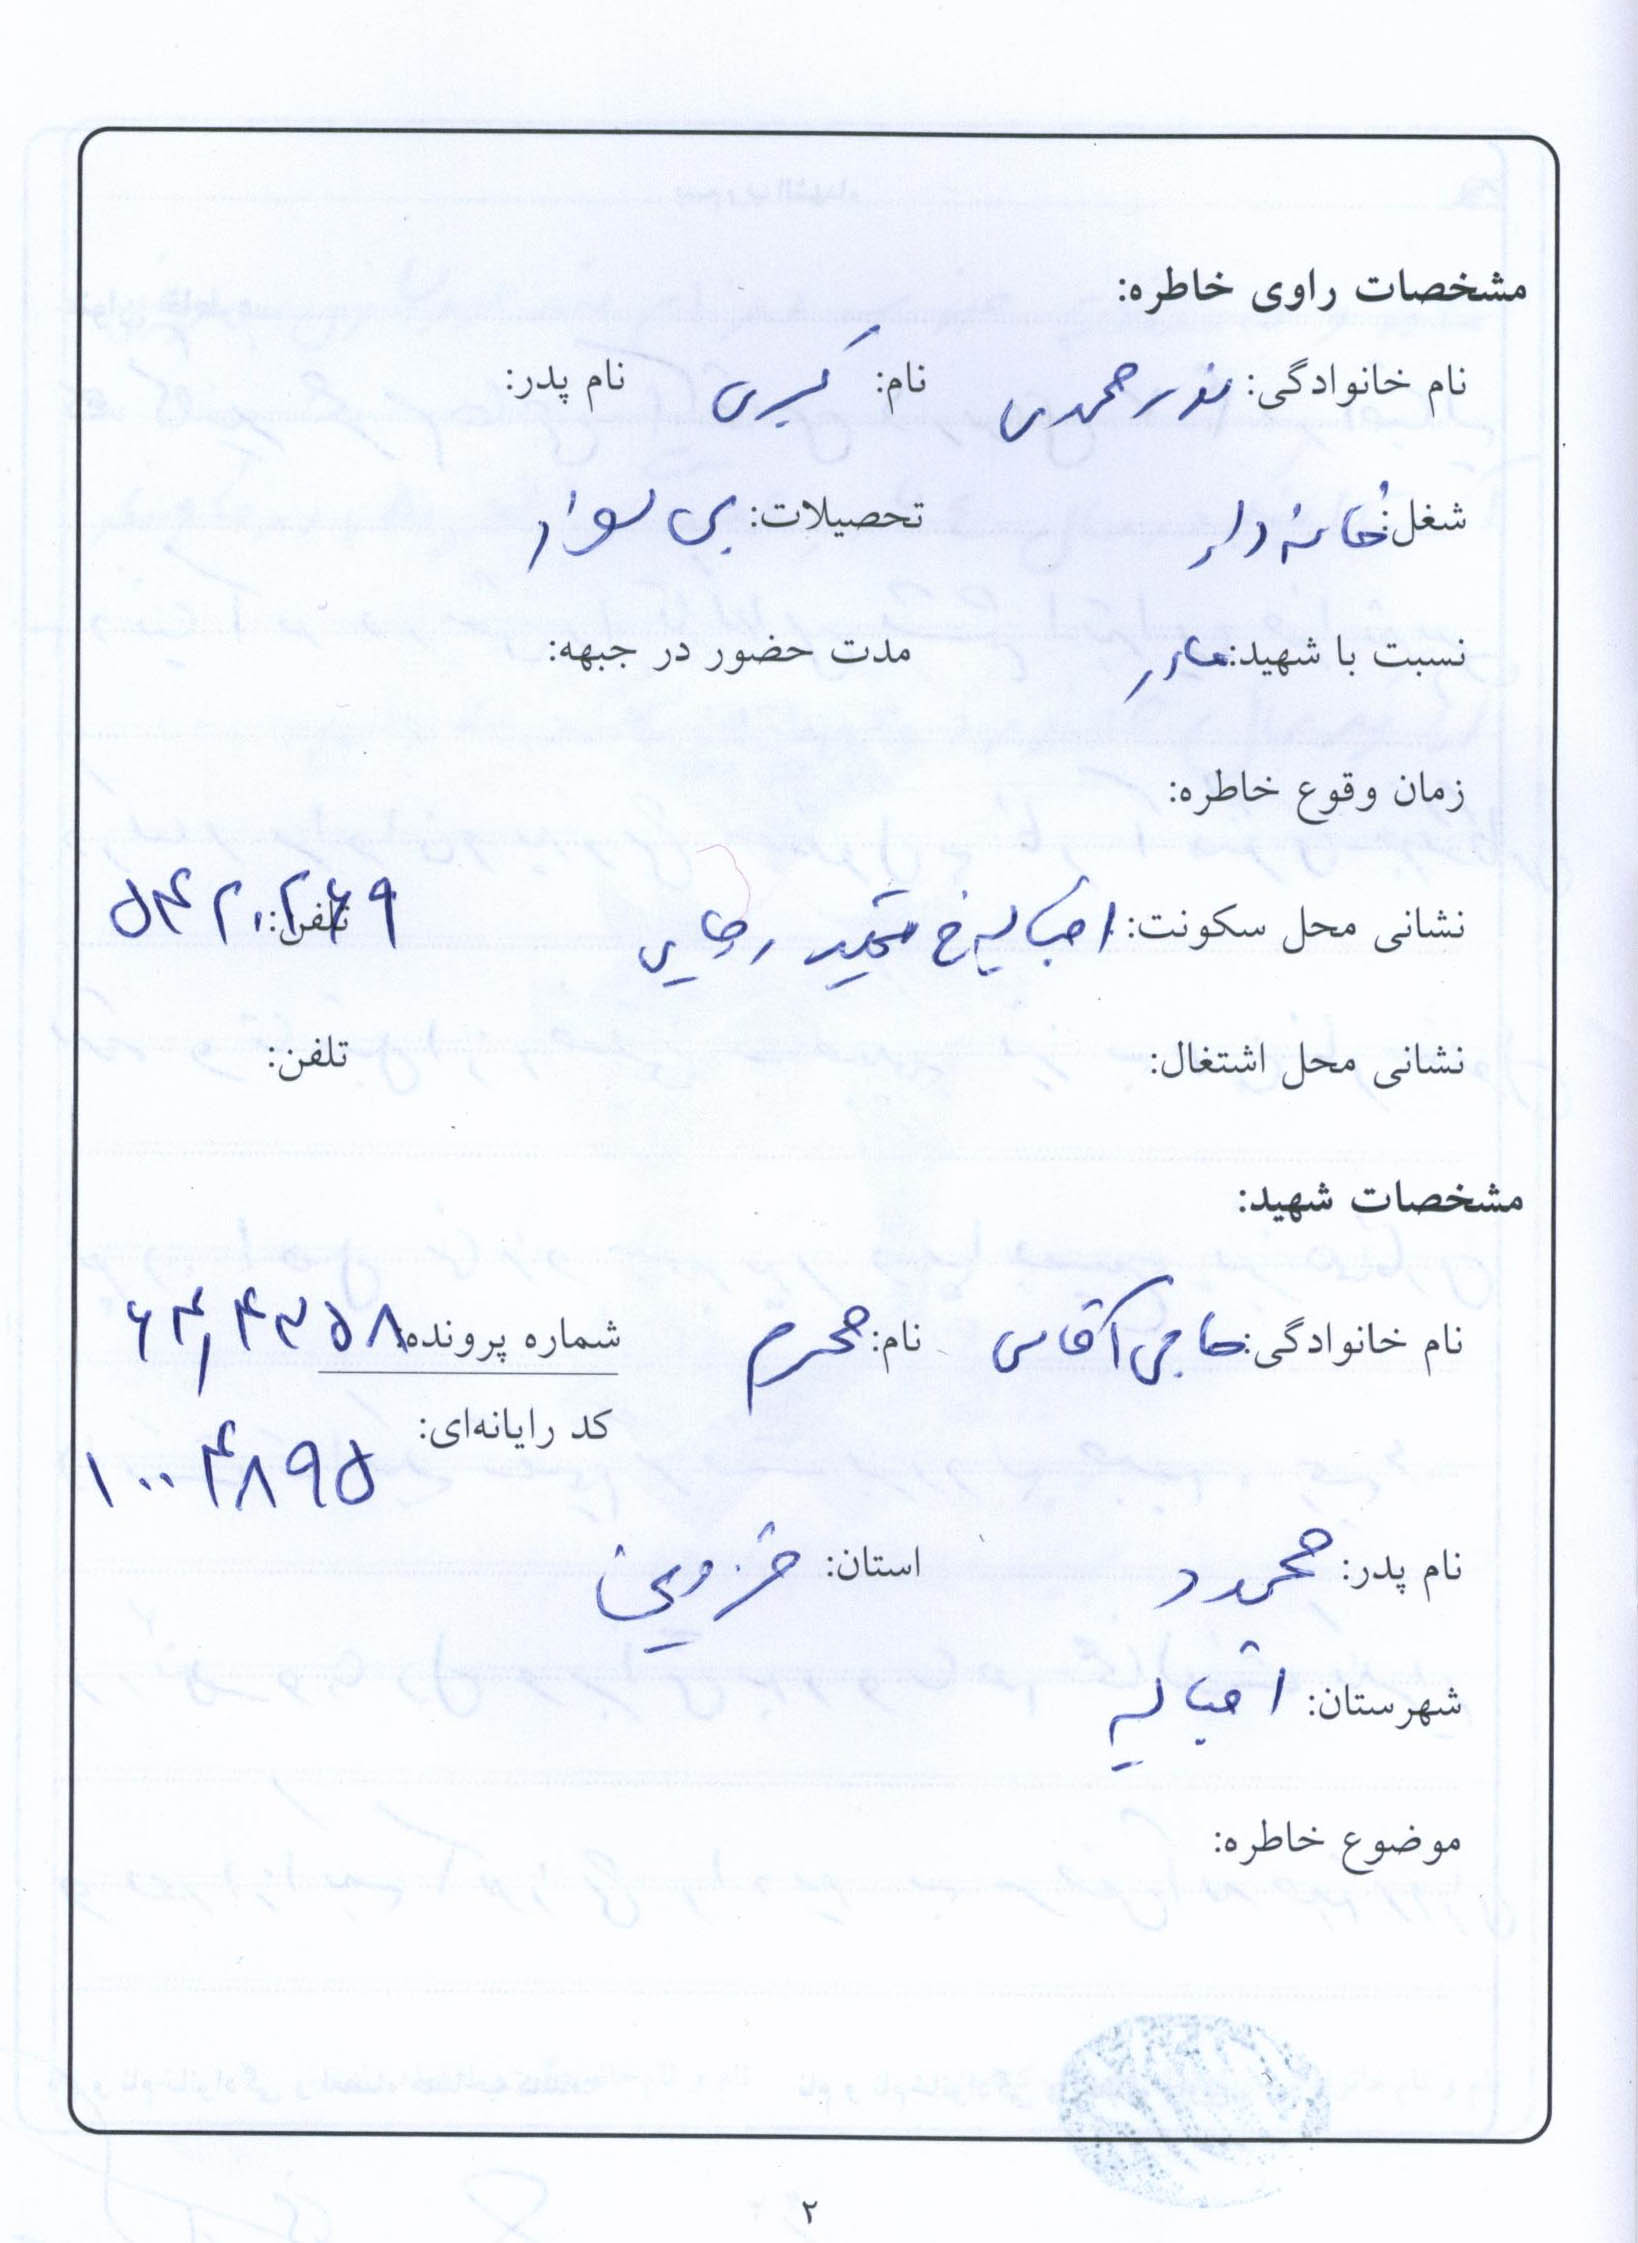 مشخصات راوی خاطره:
نام خانوادگی: نورمحمدی نام: کبری نام پدر:
شغل: خانه دار تحصیلات: بی سواد
نسبت با شهید: مادر مدت حضور در جبهه:
زمان وقوع خاطره:
نشانی محل سکونت: اقبالیه خ شهید رجایی تلفن: ۵۴۲۰۲۶۹
نشانی محل اشتغال: تلفن:
مشخصات شهید:
نام خانوادگی: حاجی آقایی نام: محرم شماره پرونده ۶۴,۴۳۵۸
کد رایانه‌ای: ۱۰۰۴۸۹۵
نام پدر: محمود استان: قزوین
شهرستان: اقبالیه
موضوع خاطره:
۲